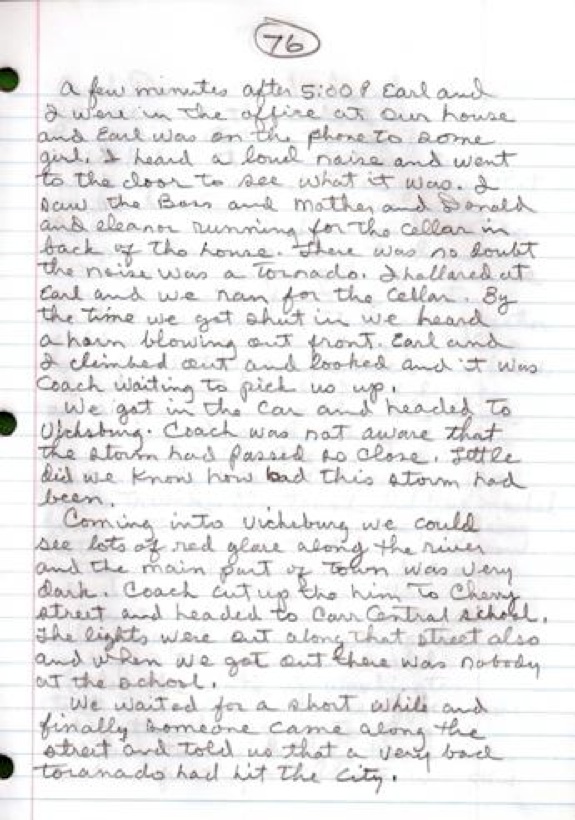 76
A few minutes after 5:00 P Earl and
I were in the office at our house
and Earl was on the phone to some
girl. I heard a loud noise and went
to the door to see what it was. I
saw the Boss and Mother and Donald
and eleanor running for the cellar in
back of the house. There was no doubt
the noise was a tornado. I hollared at
Earl and we ran for the cellar. By
the time we got shut in we heard
a horn blowing out front. Earl and
I climbed out and looked and it was
Coach waiting to pick us up.
We got in the car and headed to
Vicksburg. Coach was not aware that
the storm had passed so close. Little
did we know how bad this storm had
been.
Coming into Vicksburg we could
see lots of red glare along the river
and the main part of town was very
dark. Coach cut up the him To Cherry
street and headed to Carr Central school.
The lights were out along that street also
and when we got out there was nobody
at the school.
We waited for a short while and
finally someone came along the
street and told us that a very bad
toranado had hit the city.